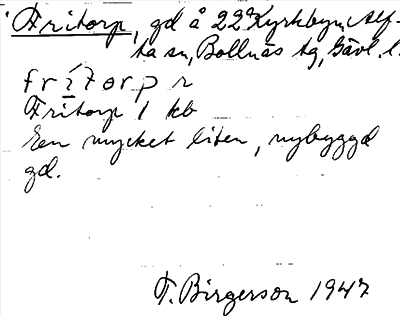 Fritorp, gd å 22ᵃ Kyrkbyn, Alf-
ta sn, Bollnäs tg, Gävl. l.
frítorp r
Fritorp 1 kb
En mycket liten, nybyggd
gd.
T. Birgerson 1947